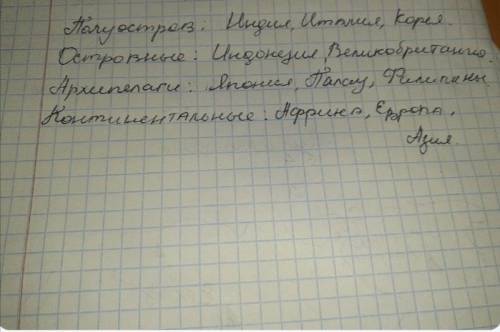 Полуостров: Индия, Италия, Корея.
Островные: Индонезия, Великобритания.
Архипелаги: Япония, Палау, Филипины
Континентальные: Африка, Европа,
Азия.